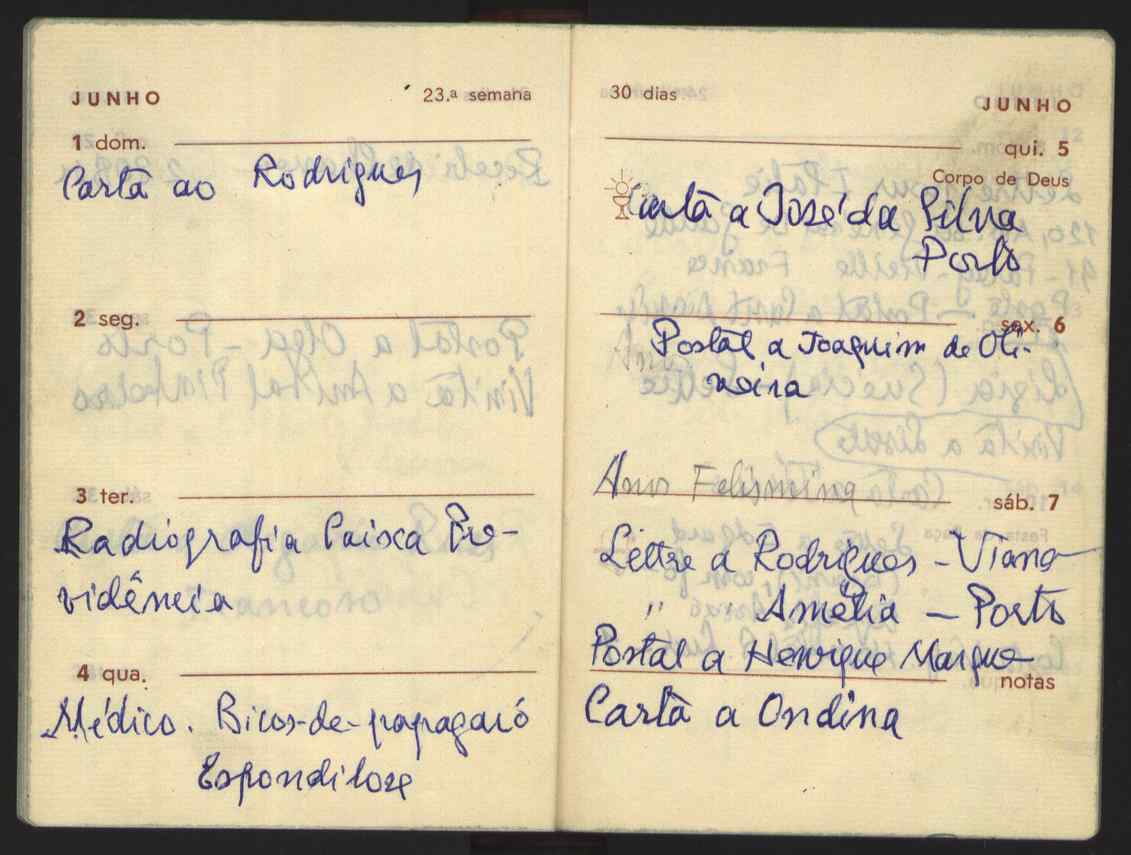 JUNHO 23.ª semana
1 dom.
Carta ao Rodrigues
2 seg.
3 ter.
Radiografia Caixa Pre-
vidência
4 qua.
Médico. Bicos-de-papagaio
Espondilose
30 dias JUNHO
qui. 5
Corpo de Deus
Carta a José da Silva
Porto
sex. 6
Postal a Joaquim de Oli-
veira
Ano Felismina
sáb. 7
Lettre a Rodrigues - Viana
" Amélia - Porto
Postal a Henrique Marque
notas
Carta a Ondina